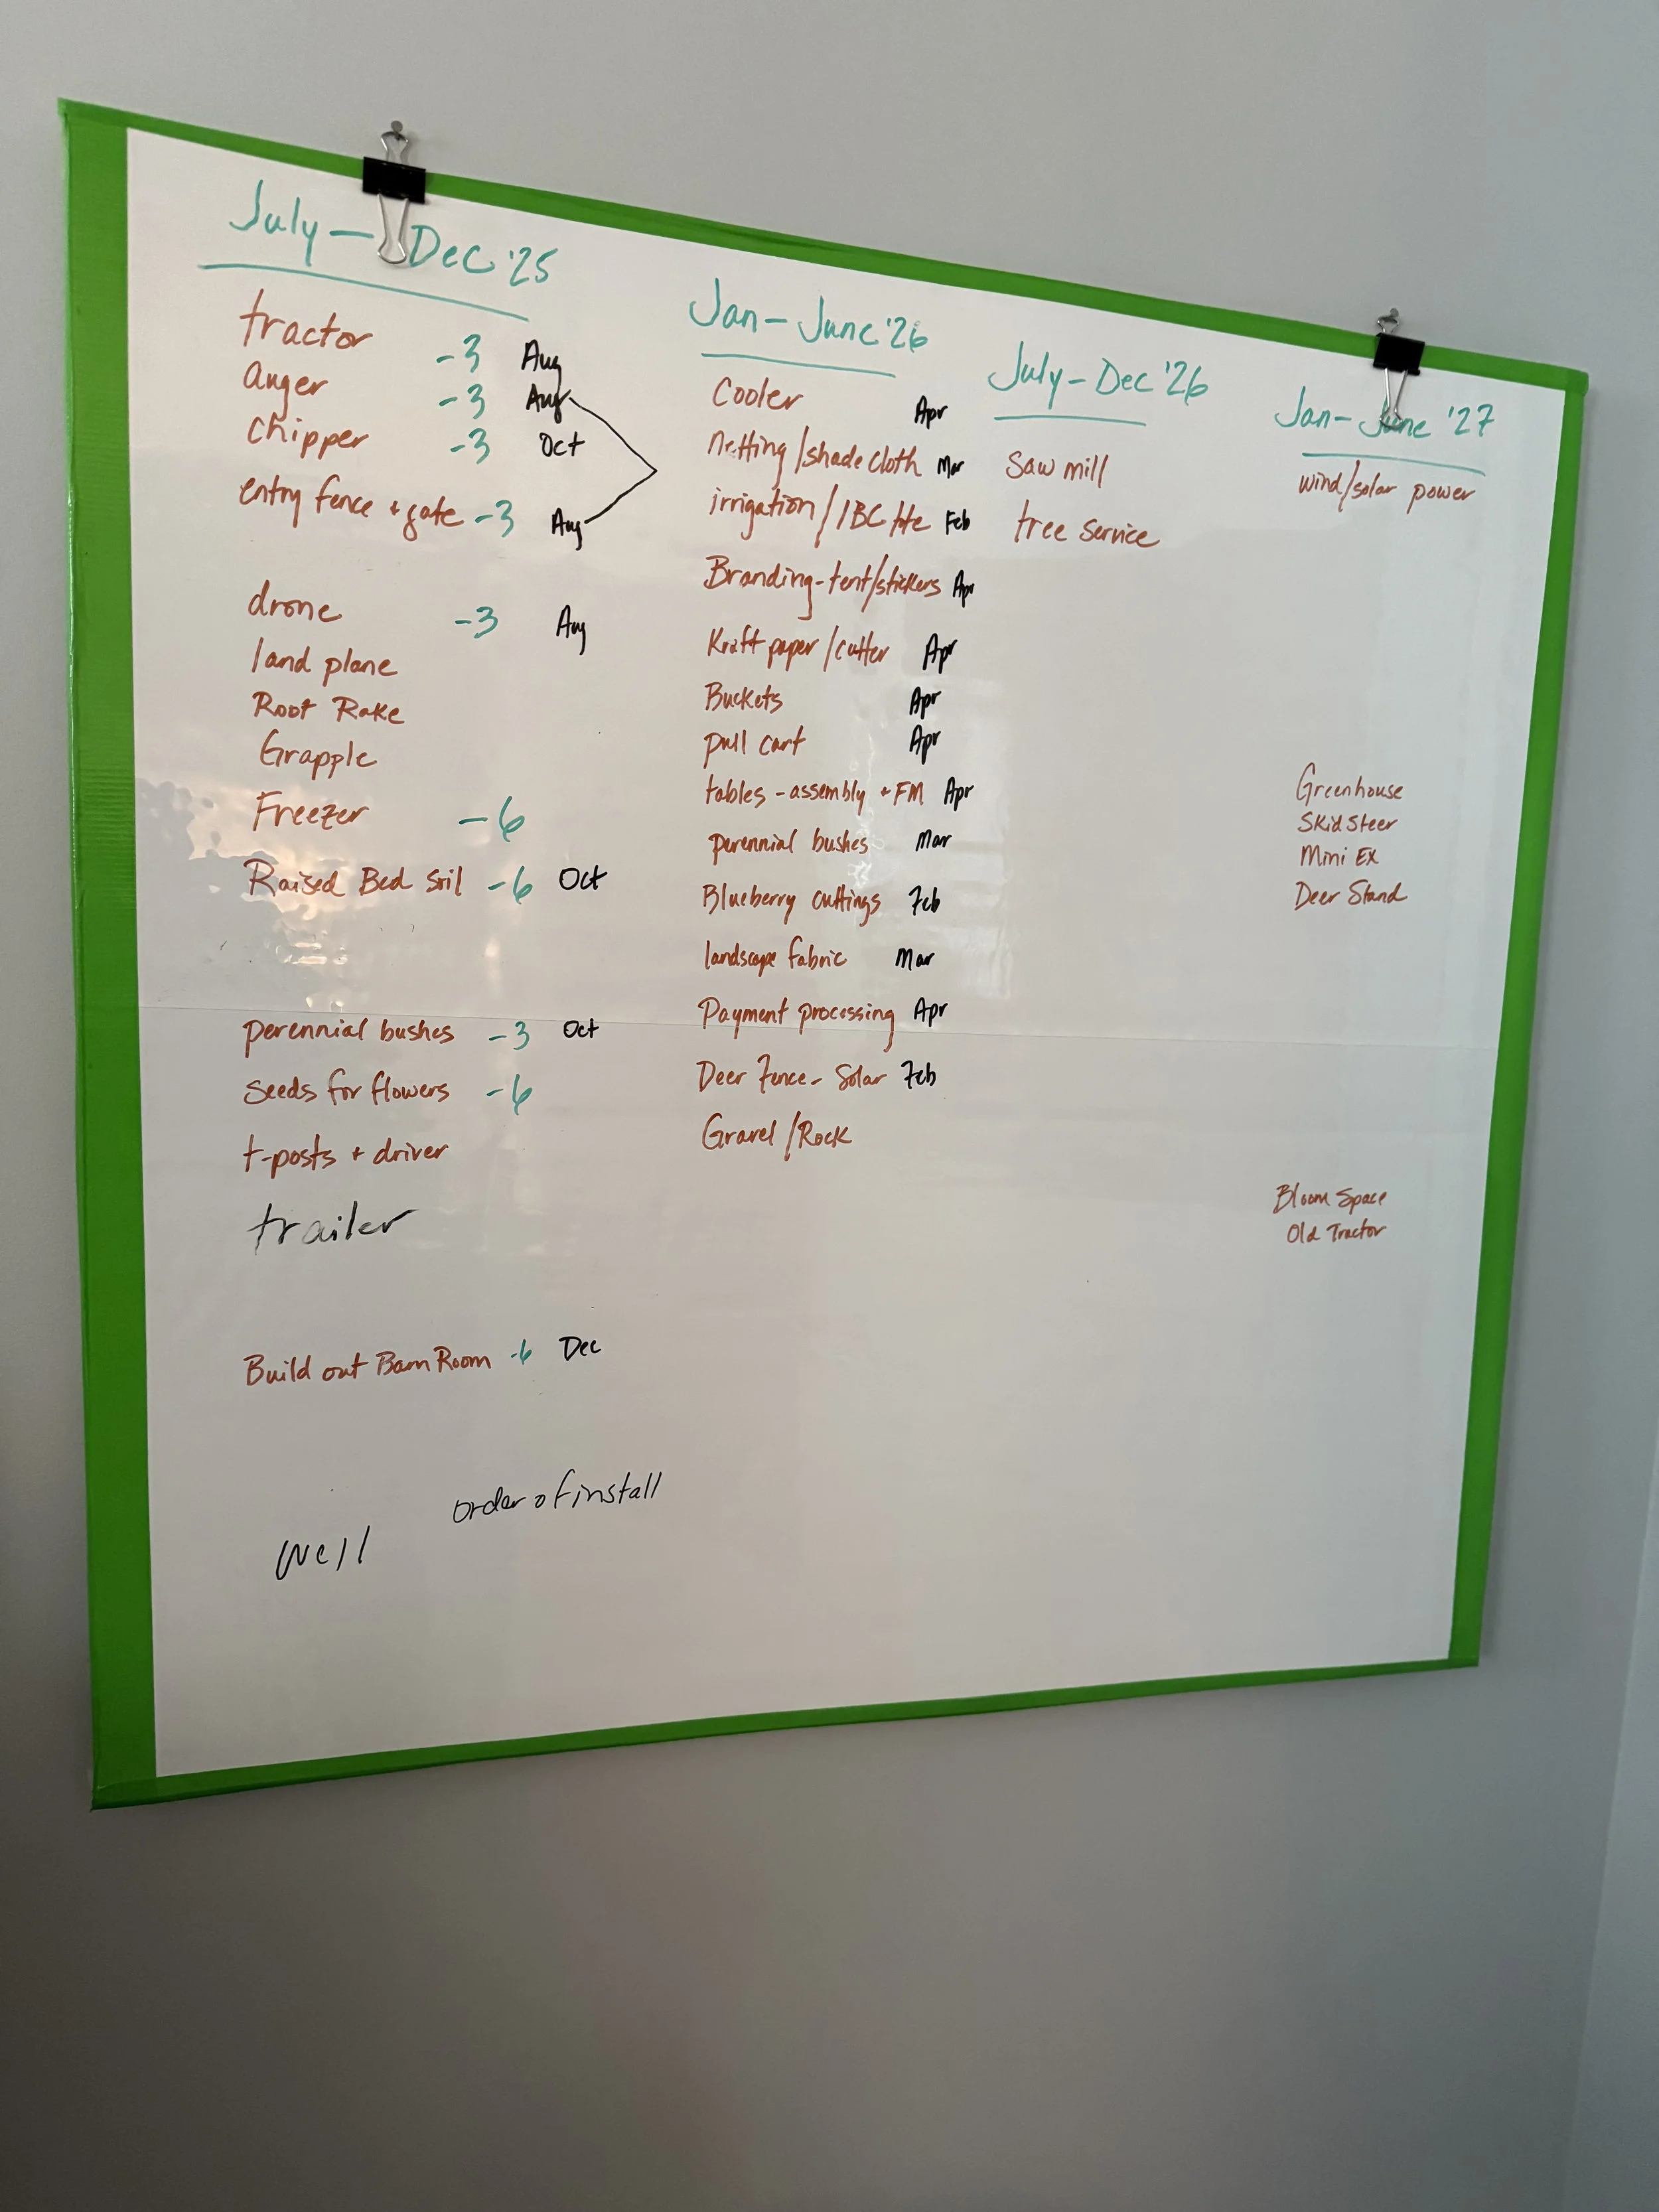 July - Dec '25
tractor -3 Aug
auger -3 Aug
chipper -3 Oct
entry fence + gate -3 Aug
drone -3 Aug
land plane
Root Rake
Grapple
Freezer -6
Raised Bed Soil -6 Oct
perennial bushes -3 Oct
seeds for flowers -6
t-posts + driver
trailer
Build out Barn Room -6 Dec
order of install
well
Jan - June '26
Cooler Apr
netting/shade cloth Mar
irrigation/IBC tote Feb
Branding-tent/stickers Apr
Kraft paper/cutter Apr
Buckets Apr
pull cart Apr
tables - assembly + FM Apr
perennial bushes Mar
Blueberry cuttings Feb
landscape fabric Mar
Payment processing Apr
Deer Fence - Solar Feb
Gravel/Rock
July - Dec '26
Saw mill
tree service
Jan - June '27
wind/solar power
Greenhouse
Skid Steer
Mini Ex
Deer Stand
Bloom Space
Old Tractor